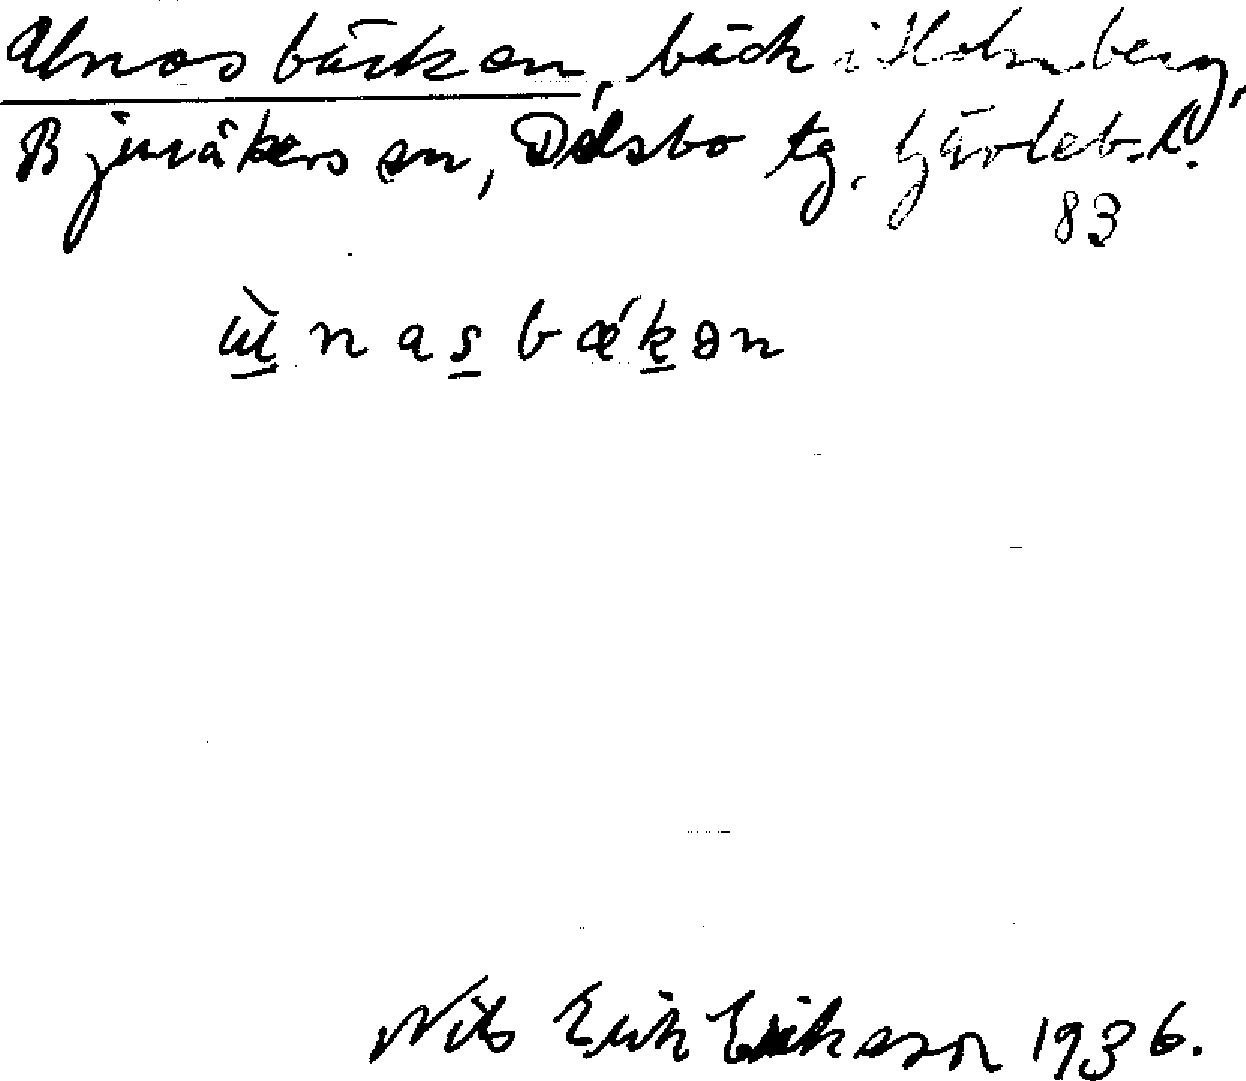 Unasbäcken, bäck i Holmberg,
Bjuråkers sn, Delsbo tg. Gävleb. l.
83
ùnasbǽkən
Nils Erik Erikeson 1936.